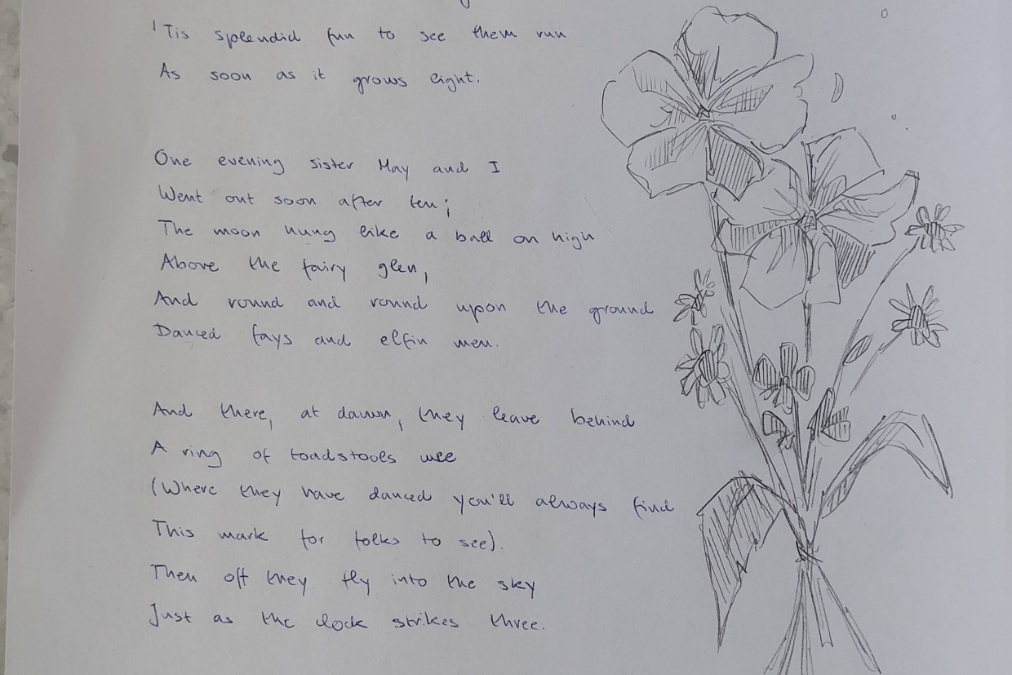 'Tis splendid fun to see them run
As soon as it grows light.
One evening sister May and I
Went out soon after ten;
The moon hung like a ball on high
Above the fairy glen,
And round and round upon the ground
Danced fays and elfin men.
And there, at dawn, they leave behind
A ring of toadstools wee
(Where they have danced you'll always find
This mark for folks to see).
Then off they fly into the sky
Just as the clock strikes three.